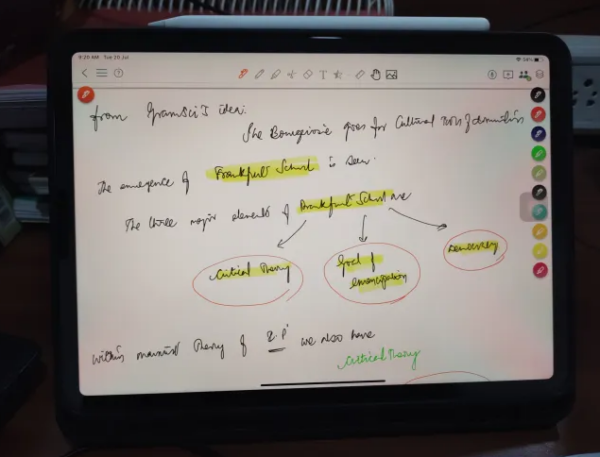 from Gramsci's idea.
The Bourgeoisie goes for Cultural tools of domination
The emergence of Frankfurt School is seen.
The three major elements of Frankfurt School are
Democracy
Critical Theory
Goal of
emancipation
Within marxist Theory of we also have
Critical Theory